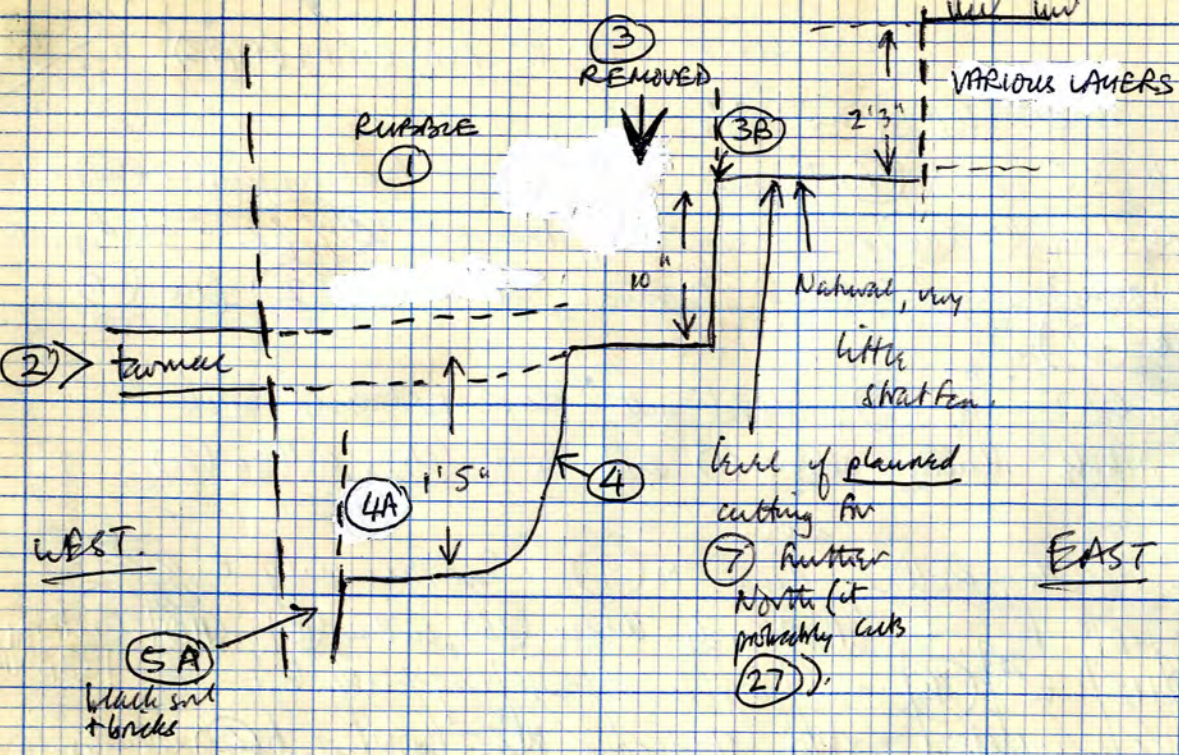 3
REMOVED
VARIOUS LAYERS
2'3"
3B
RUBBLE
1
10"
Natural, very
little
stratfcn.
2
tarmac
level of planned
cutting for
7 further
North (it
probably cuts
27)).
4A
1'5"
4
WEST.
EAST
5A
black soil
+ bricks